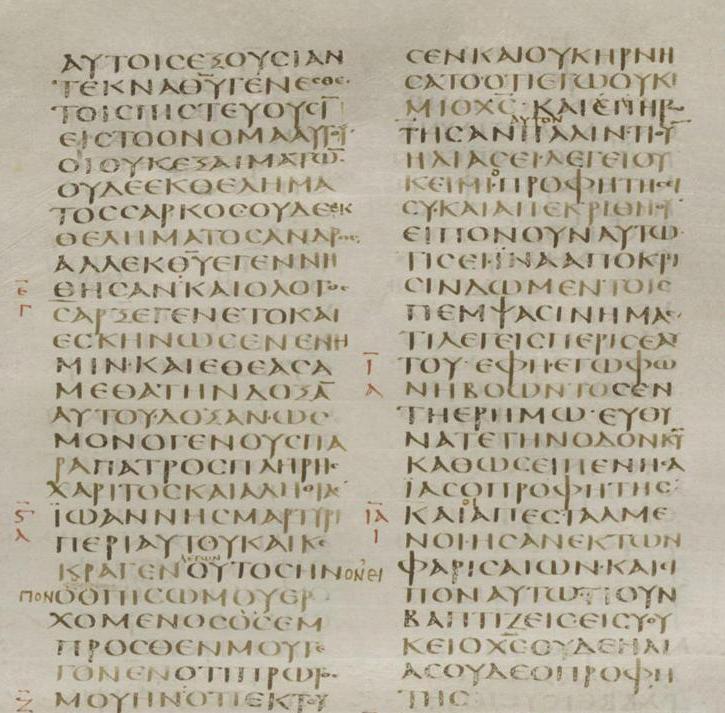 ΑΥΤΟΙϹΕΞΟΥϹΙΑΝ
ΤΕΚΝΑΘΥΓΕΝΕϹΘΕ
ΤΟΙϹΠΙϹΤΕΥΟΥϹΙ
ΕΙϹΤΟΟΝΟΜΑΑΥΤΟΥ
ΟΙΟΥΚΕΞΑΙΜΑΤΩ
ΟΥΔΕΕΚΘΕΛΗΜΑ
ΤΟϹϹΑΡΚΟϹΟΥΔΕΕΚ
ΘΕΛΗΜΑΤΟϹΑΝΔΡΟϹ
ΑΛΛΕΚΘΥΕΓΕΝΝΗ
ΘΗϹΑΝ·ΚΑΙΟΛΟΓΟϹ
ΕΓ
ϹΑΡΞΕΓΕΝΕΤΟΚΑΙ
ΕϹΚΗΝΩϹΕΝΕΝΗ
ΜΙΝ·ΚΑΙΕΘΕΑϹΑ
ΜΕΘΑΤΗΝΔΟΞΑ
ΑΥΤΟΥ·ΔΟΞΑΝ·ΩϹ
ΜΟΝΟΓΕΝΟΥϹΠΑ
ΡΑΠΑΤΡΟϹΠΛΗΡΗϹ
ΧΑΡΙΤΟϹΚΑΙΑΛΗΘΙΑϹ
Ϛ
Α
ΪΩΑΝΝΗϹΜΑΡΤΥΡΙ
ΠΕΡΙΑΥΤΟΥΚΑΙΚΕ
ΚΡΑΓΕΝ ΛΕΓΩΝ ΟΥΤΟϹΗΝΟΝΕΙ
ΠΟΝΟΟΠΙϹΩΜΟΥΕΡ
ΧΟΜΕΝΟϹΟϹΕΜ
ΠΡΟϹΘΕΝΜΟΥΓΕ
ΓΟΝΕΝΟΤΙΠΡΩΤΟϹ
Ζ
ΜΟΥΗΝ·ΟΤΙΕΚΤΟΥ
ϹΕΝΚΑΙΟΥΚΗΡΝΗ
ϹΑΤΟΟΤΙΕΓΩΟΥΚΙ
ΜΙΟΧϹ·ΚΑΙΕΠΗΡΩ
ΑΥΤΟΝ
ΤΗϹΑΝΠΑΛΙΝ·ΤΙϹΥ
ΗΛΙΑϹΕΙ·ΛΕΓΕΙΟΥ
ΚΕΙΜΙ·ΟΠΡΟΦΗΤΗϹΕΙ
ϹΥ·ΚΑΙΑΠΕΚΡΙΘΗΟΥ
ΕΙΠΟΝΟΥΝΑΥΤΩ
ΤΙϹΕΙ·ΪΝΑΑΠΟΚΡΙ
ϹΙΝΔΩΜΕΝΤΟΙϹ
ΠΕΜΨΑϹΙΝΗΜΑϹ
ΤΙΛΕΓΕΙϹΠΕΡΙϹΕΑΥ
Ι
Α
ΤΟΥ·ΕΦΗ·ΕΓΩΦΩ
ΝΗΒΟΩΝΤΟϹΕΝ
ΤΗΕΡΗΜΩ·ΕΥΘΥ
ΝΑΤΕΤΗΝΟΔΟΝΚΥ
ΚΑΘΩϹΕΙΠΕΝΗϹΑ
ΪΑϹΟΠΡΟΦΗΤΗϹ
ΙΑ
Ι
ΚΑΙΟΙΑΠΕϹΤΑΛΜΕ
ΝΟΙΗϹΑΝΕΚΤΩΝ
ΦΑΡΙϹΑΙΩΝ·ΚΑΙΕΙ
ΠΟΝΑΥΤΩΤΙΟΥΝ
ΒΑΠΤΙΖΕΙϹΕΙϹΥΟΥ
ΚΕΙΟΧϹΟΥΔΕΗΛΙ
ΑϹΟΥΔΕΟΠΡΟΦΗ
ΤΗϹ